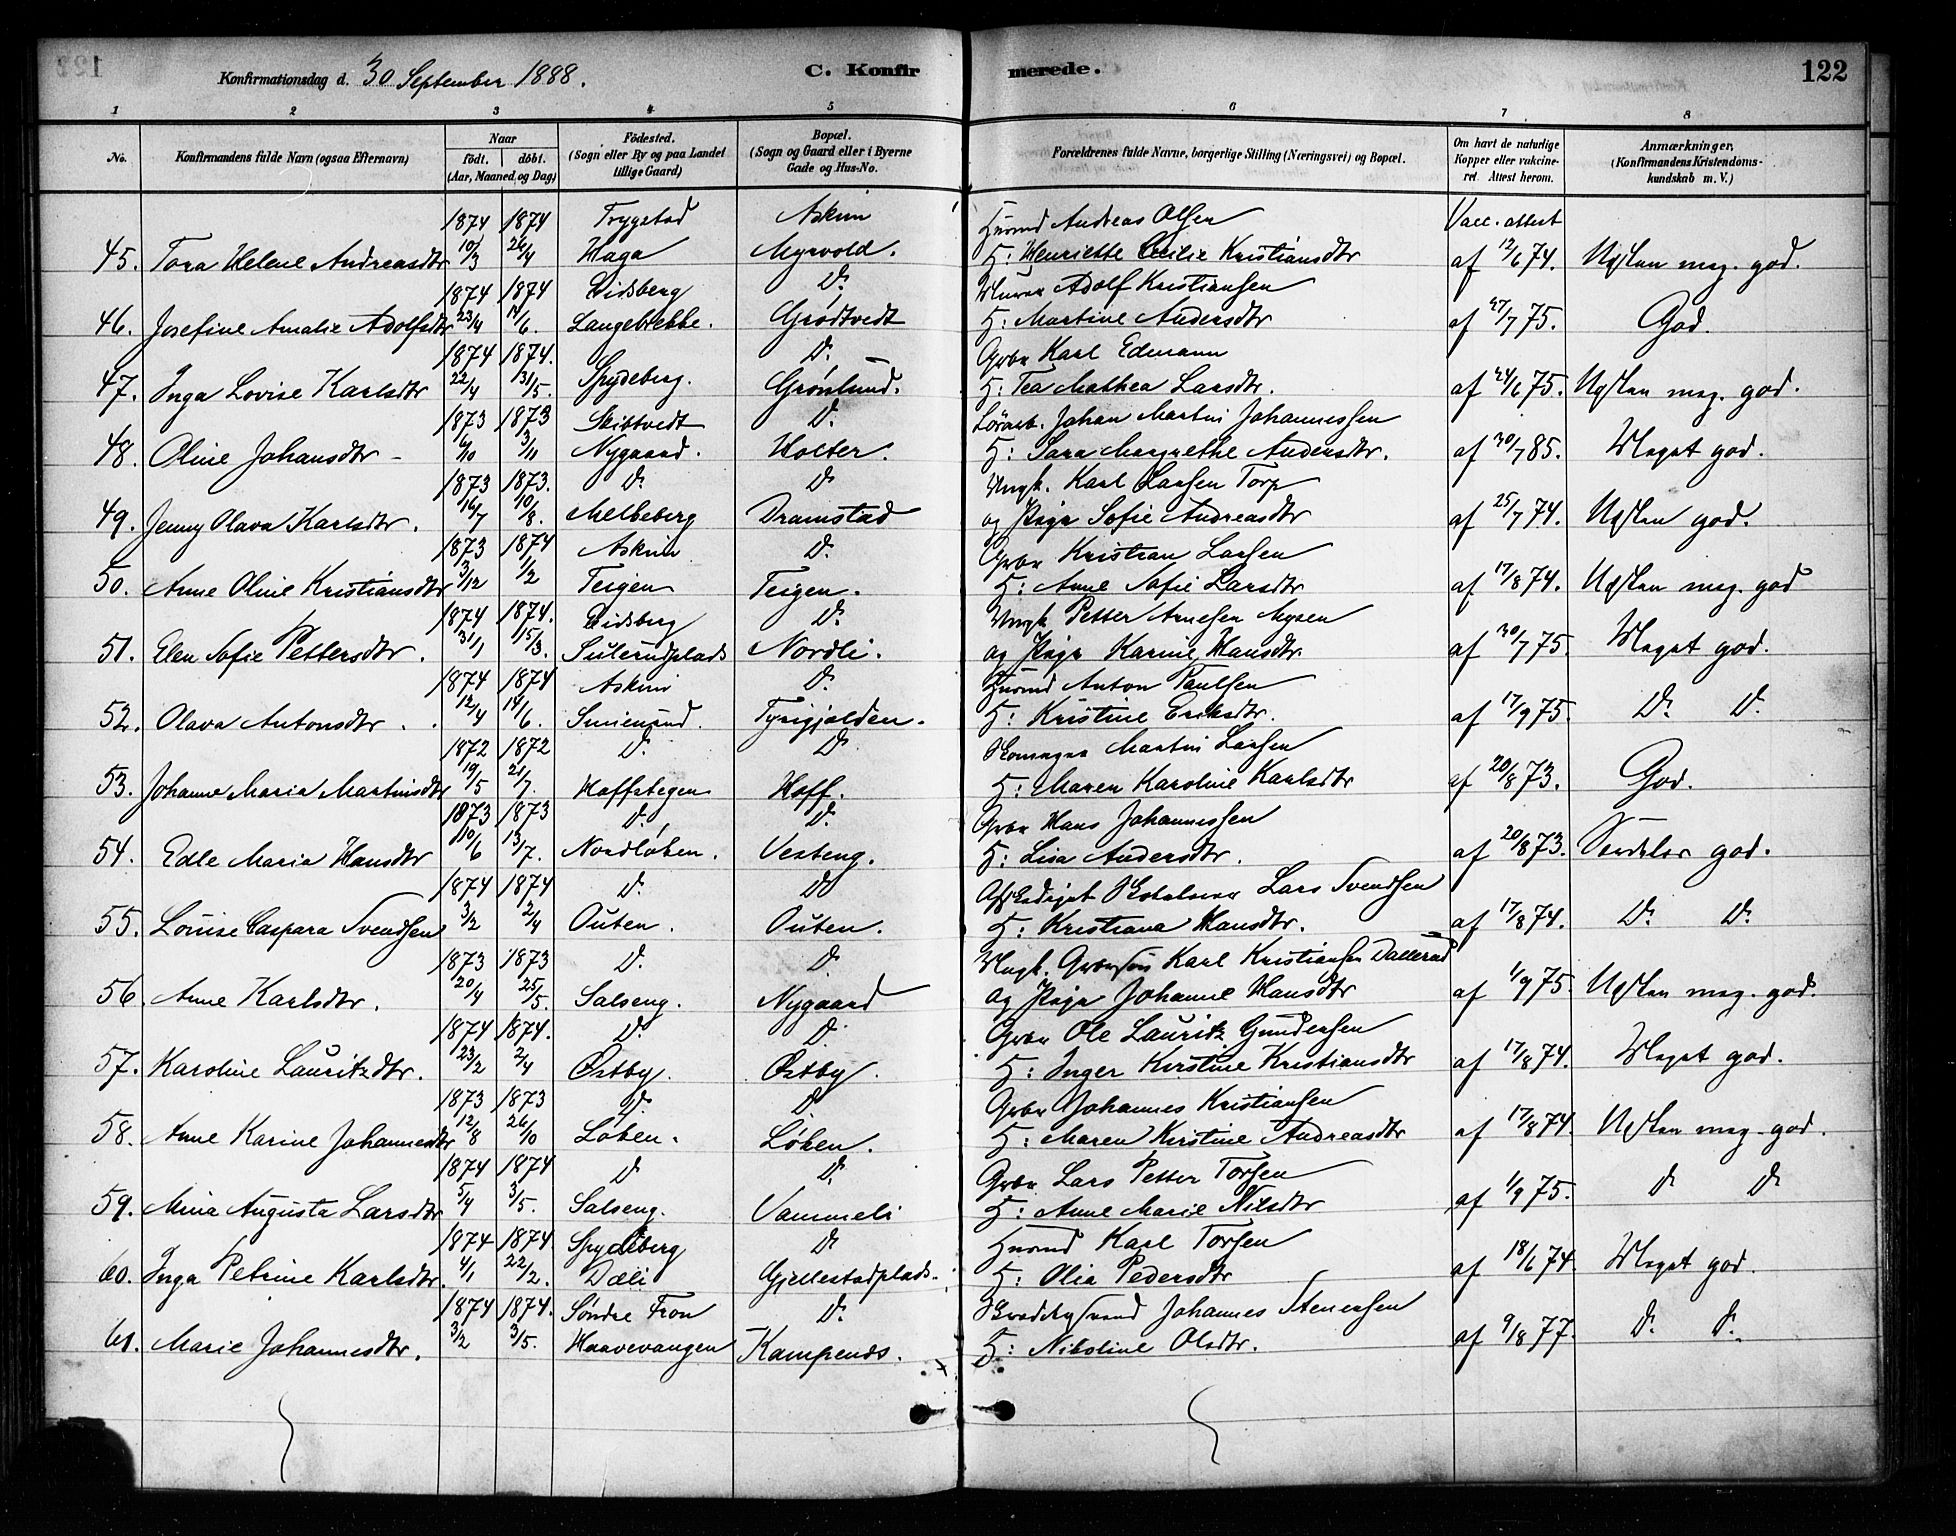 Konfirmationsdag d. 30 September 1888.
C. Konfirmerede.
122
1 2 3 4 5 6 7 8
No.
Konfirmandens fulde Navn (ogsaa Efternavn)
Naar
födt. döbt.
(Aar, Maaned og Dag)
Födested.
(Sogn eller By og paa Landet tillige Gaard)
Bopæl.
(Sogn og Gaard eller i Byerne Gade og Hus-No.
Forældrenes fulde Navne, borgerlige Stilling (Næringsvei) og Bopæl.
Om havt de naturlige Kopper eller vakcineret. Attest herom.
Anmærkninger.
(Konfirmandens Kristendomskundskab m. V.)
1874 1874 Trygstad Askim Husmd Andreas Olsen Vacc. attest
45. Tora Helene Andreasdtr 10/3 26/4 Haga Myrvold. H: Henriette Cecilie Kristiansdtr af 12/6 74. Næsten meg. god.
1874 1874 Eidsberg D. Murer Adolf Kristiansen
46. Josefine Amalie Adolfsdtr 23/4 14/6. Langebrekke. Grødtvedt H: Martine Andersdtr af 27/7 75. God.
1874 1874. D. Grbr Karl Edmann
47. Inga Lovise Karlsdtr 22/4 31/5. Spydeberg. Grønlund. H: Tea Mathea Larsdtr. af 24/6 75. Næsten meg. god.
1873 1873 Skibtvedt D. Løsarb. Johan Martin Johannessen
48. Oline Johansdtr 6/10 3/11 Nygaard. Holter. H: Sara Margrethe Andersdtr. af 30/7 85. Meget god.
1873 1873. D. D. Ungk. Karl Larsen Torp
49. Jenny Olava Karlsdtr. 16/7 10/8. Melleberg Dramstad og Pige Sofie Andreasdtr af 25/7 74. Næsten god.
1873 1874 Askim D. Grbr Kristian Larsen
50. Anne Oline Kristiansdtr 3/12 1/2 Teigen Teigen. H: Anne Sofie Larsdtr af 17/8 74. Næsten meg. god
1874 1874. Eidsberg D. Ungk Petter Arnesen Mysen
51. Elen Sofie Pettersdtr. 31/1 15/3. Sulerudplads Nordli. og Pige Karine Hansdtr. af 30/7 75. Meget god.
1874 1874 Askim D. Husmd Anton Paulsen
52. Olava Antonsdtr. 12/4 14/6. Smierud. Tyrigjolden. H: Kristine Eriksdtr. af 17/9 75. D. D.
1872 1872 D. D. Skomager Martin Larsen
53. Johanne Maria Martinsdtr 19/5 21/7. Hoffstegen Hoff. H: Maren Karoline Karlsdtr af 20/8 73. God.
1873 1873 D. D. Grbr Hans Johannessen
54. Edle Maria Hansdtr 10/6 13/7. Nordløken. Vesteng. H: Lisa Andersdtr. af 20/8 73. Særdeles god.
1874 1874 D. D Afskediget Skolelærer Lars Svendsen
55. Louise Caspara Svendsen 3/2 2/4 Outen. Outen. H: Kristiana Hansdtr. af 17/8 74. D. D.
1873 1873 D. D. Ungk. Grbrsøn Karl Kristiansen Dallerud
56. Anne Karlsdtr. 20/4 25/5. Salseng. Nygaard og Pige Johanne Hansdtr af 1/9 75. Næsten meg. god.
1874 1874. D. D. Grbr Ole Lauritz Gundersen
57. Karoline Lauritzdtr. 23/2 2/4 Østby. Østby. H: Inger Kirstine Kristiansdtr af 17/8 74. Meget god.
1873 1873 D. D Grbr Johannes Kristiansen
58. Anne Karine Johannesdtr 12/8 26/10 Løken. Løken. H: Maren Kirstine Andreasdtr af 17/8 74. Næsten meg. god.
1874 1874 D D. Grbr Lars Petter Torsen
59. Mina Augusta Larsdtr 5/4 3/5. Salseng. Vammeli H: Anne Marie Nilsdtr af 1/9 75. D. D
1874 1874 Spydeberg D. Husmd Karl Torsen
60. Inga Petrine Karlsdtr. 4/1 22/2. Dæli Gjellestadplads. H: Olia Pedersdtr af 18/6 74. Meget god.
1874 1874. Søndre Fron D. Johannes Stenersen
61. Marie Johannesdtr. 3/2 3/5. Haavevangen Kampenes. H: Nikoline Olsdtr. af 9/8 77. D. D.